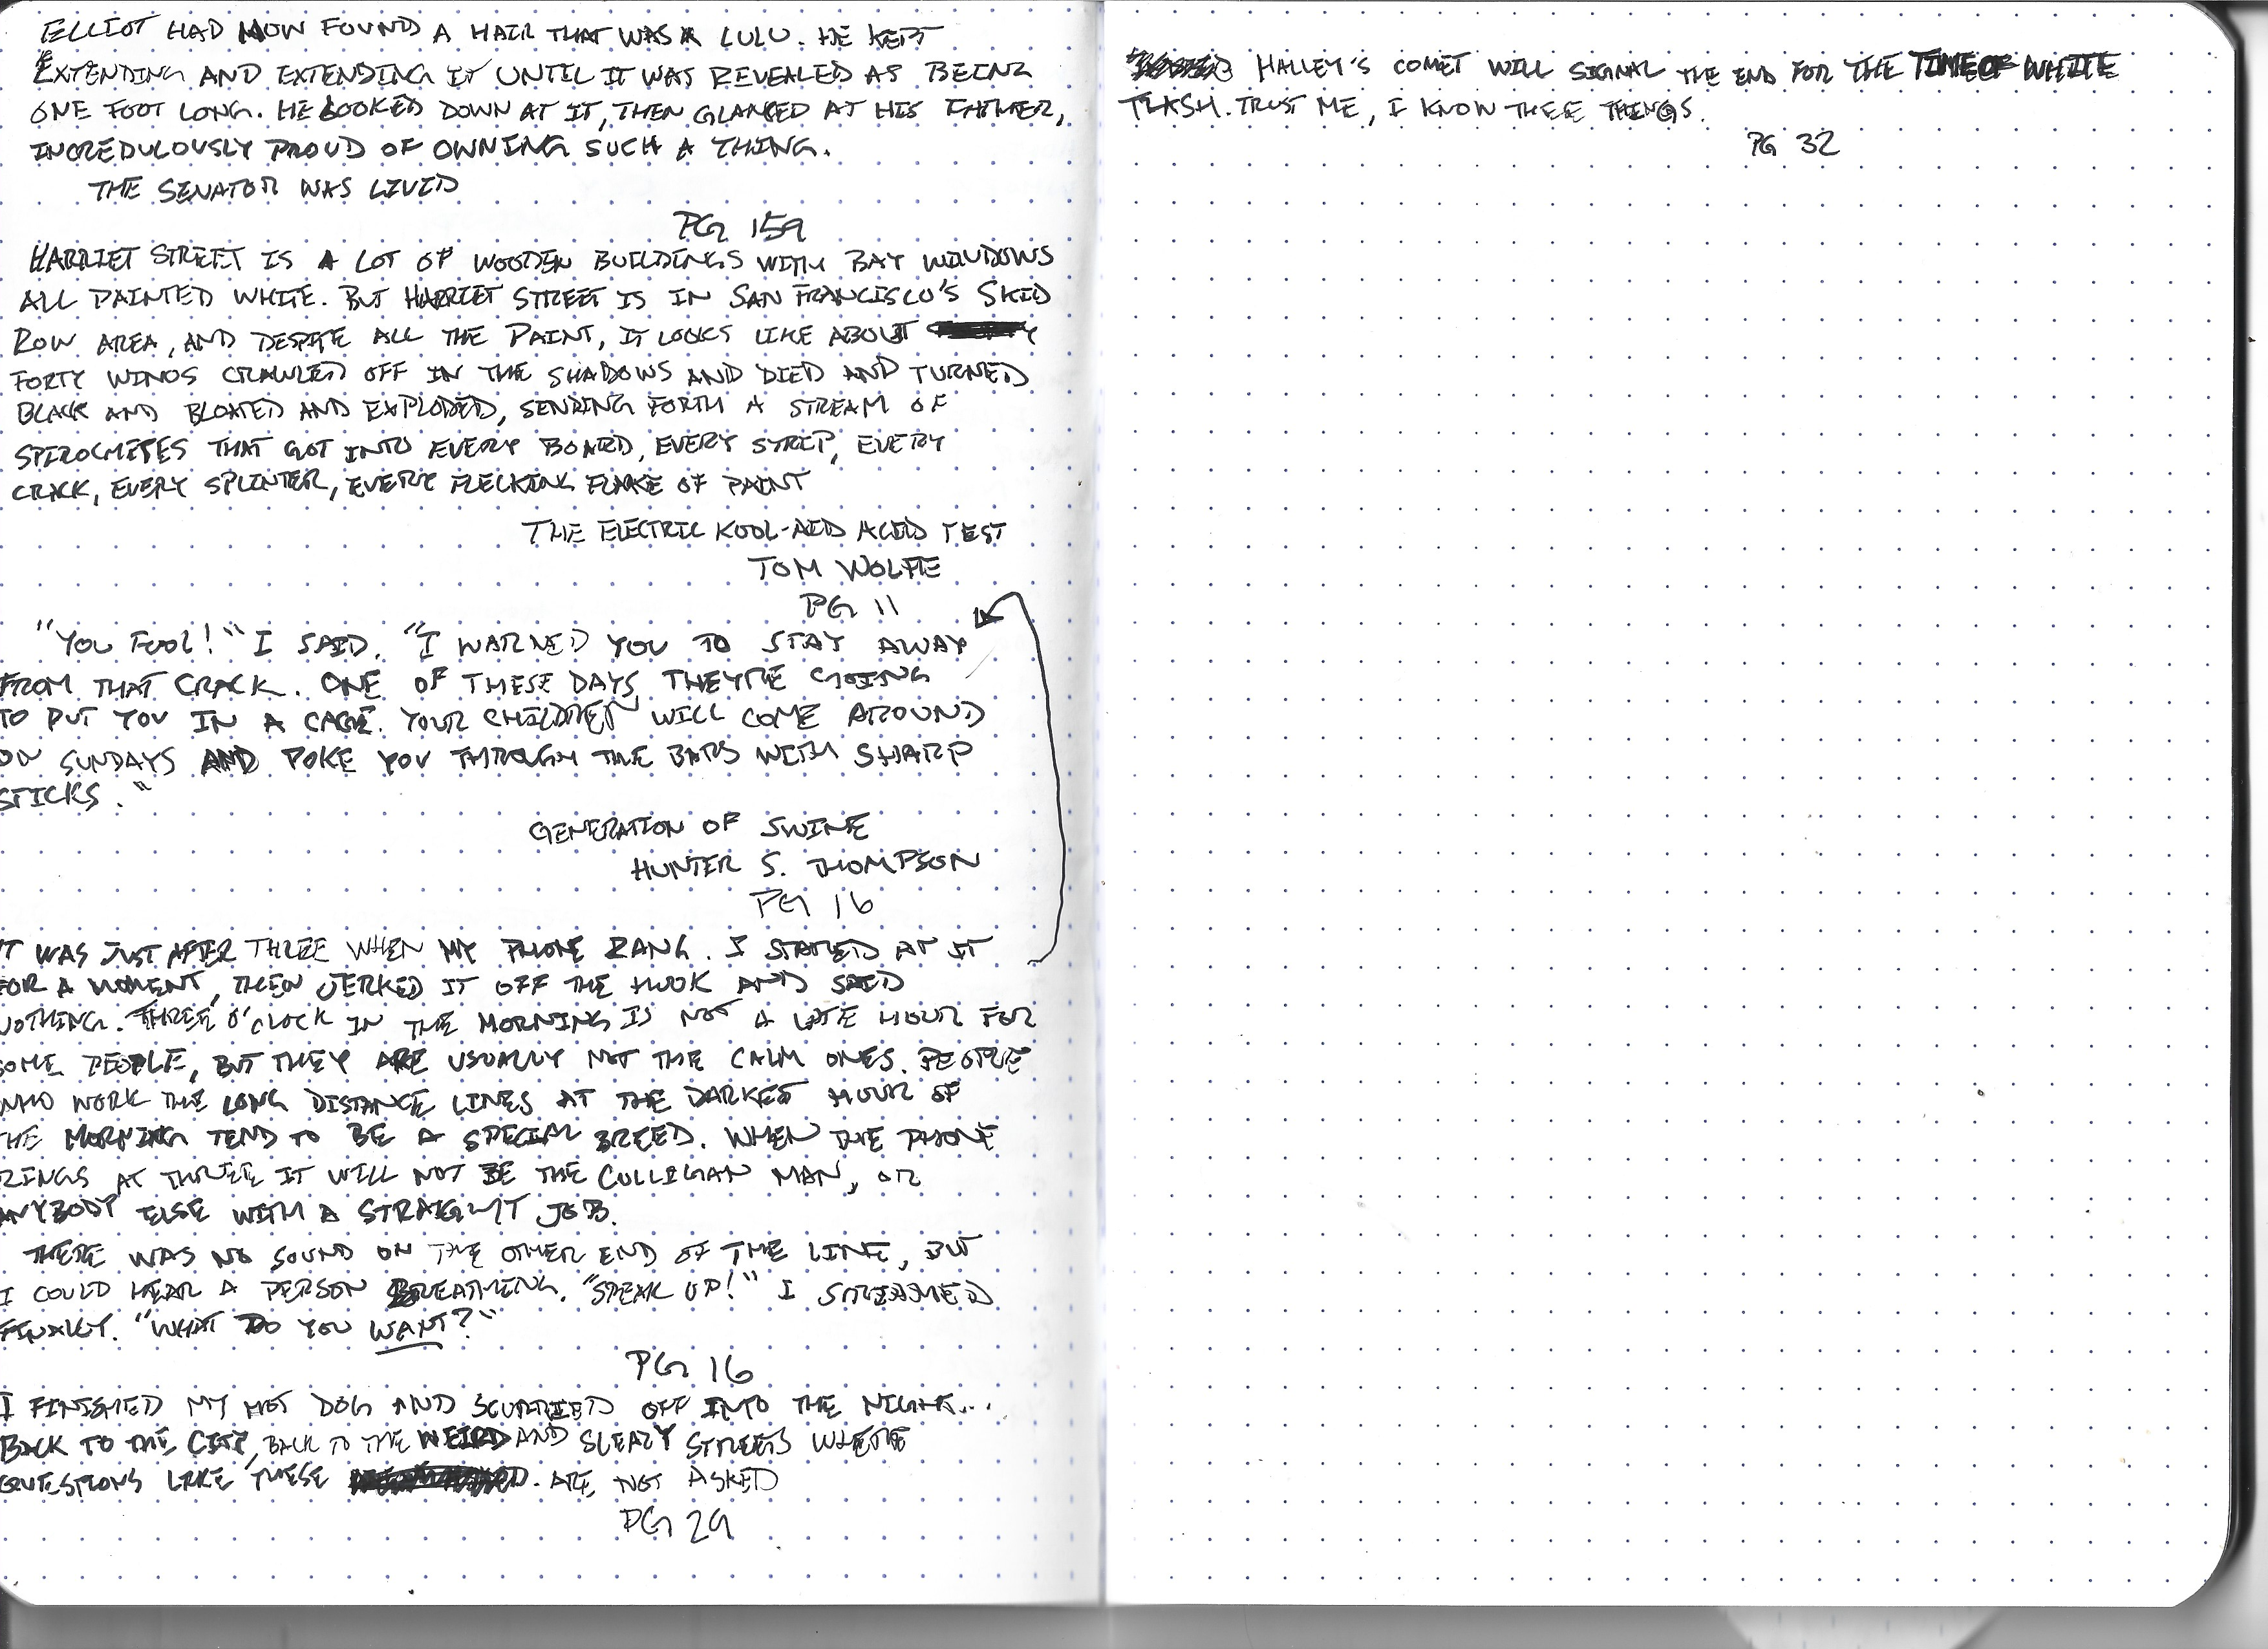 ELLIOT HAD NOW FOUND A HAIR THAT WAS A LULU. HE KEPT
EXTENDING AND EXTENDING IT UNTIL IT WAS REVEALED AS BEING
ONE FOOT LONG. HE LOOKED DOWN AT IT, THEN GLANCED AT HIS FATHER,
INCREDULOUSLY PROUD OF OWNING SUCH A THING.
THE SENATOR WAS LIVID
PG 159
HARRIET STREET IS A LOT OF WOODEN BUILDINGS WITH BAY WINDOWS
ALL PAINTED WHITE. BUT HARRIET STREET IS IN SAN FRANCISCO'S SKID
ROW AREA, AND DESPITE ALL THE PAINT, IT LOOKS LIKE ABOUT
FORTY WINOS CRAWLED OFF IN THE SHADOWS AND DIED AND TURNED
BLACK AND BLOATED AND EXPLODED, SENDING FORTH A STREAM OF
SPIROCHETES THAT GOT INTO EVERY BOARD, EVERY STRIP, EVERY
CRACK, EVERY SPLINTER, EVERY FLECKING FLAKE OF PAINT
THE ELECTRIC KOOL-AID ACID TEST
TOM WOLFE
PG 11
"YOU FOOL!" I SAID. "I WARNED YOU TO STAY AWAY
FROM THAT CRACK. ONE OF THESE DAYS THEY'RE GOING
TO PUT YOU IN A CAGE. YOUR CHILDREN WILL COME AROUND
ON SUNDAYS AND POKE YOU THROUGH THE BARS WITH SHARP
STICKS."
GENERATION OF SWINE
HUNTER S. THOMPSON
PG 16
IT WAS JUST AFTER THREE WHEN MY PHONE RANG. I STARED AT IT
FOR A MOMENT, THEN JERKED IT OFF THE HOOK AND SAID
NOTHING. THREE O'CLOCK IN THE MORNING IS NOT A LATE HOUR FOR
SOME PEOPLE, BUT THEY ARE USUALLY NOT THE CALM ONES. PEOPLE
WHO WORK THE LONG DISTANCE LINES AT THE DARKEST HOUR OF
THE MORNING TEND TO BE A SPECIAL BREED. WHEN THE PHONE
RINGS AT THREE IT WILL NOT BE THE CULLIGAN MAN, OR
ANYBODY ELSE WITH A STRAIGHT JOB.
THERE WAS NO SOUND ON THE OTHER END OF THE LINE, BUT
I COULD HEAR A PERSON BREATHING. "SPEAK UP!" I SCREAMED
FINALLY. "WHAT DO YOU WANT?"
PG 16
I FINISHED MY HOT DOG AND SCURRIED OFF INTO THE NIGHT...
BACK TO THE CITY, BACK TO THE WEIRD AND SLEAZY STREETS WHERE
QUESTIONS LIKE THESE ARE NOT ASKED
PG 29
HALLEY'S COMET WILL SIGNAL THE END FOR THE TIME OF WHITE
TRASH. TRUST ME, I KNOW THESE THINGS.
PG 32